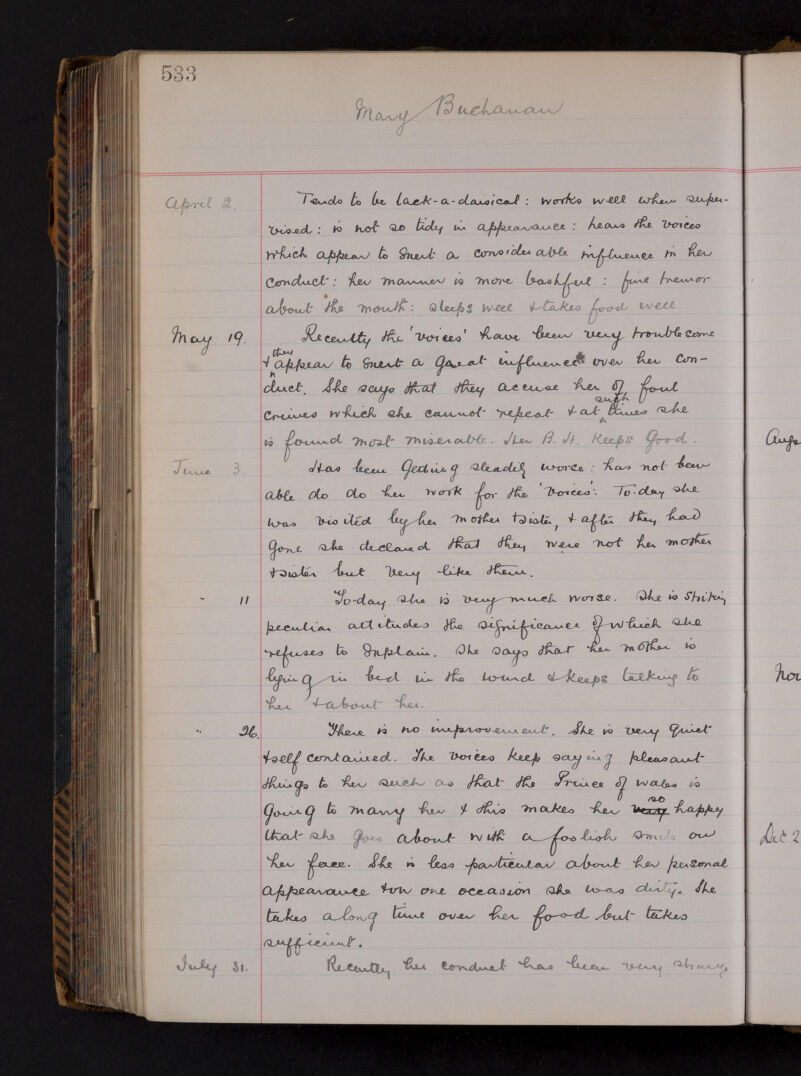 533
Mary Buchanan
April 2. Tends to be lack-a-daisical: works well when super-
vised: is not so tidy in appearance: hears the voices
which appear to exert a considerable influence in her
conduct: her manner is more bashful: fine tremor
about the mouth: sleeps well & takes food well.
May 19. Recently the 'voices' have been very troublesome
& they appear to exert a great influence over her con-
duct. She says that they accuse her of foul
crimes which she cannot repeat & at such times she
is found most miserable. Her B. H. keeps good.
June 3 Has been getting steadily worse: has not been
able do do her work for the 'voices'. To-day she
was visited by her mother & sister, & after they had
gone she declared that they were not her mother
& sister but very like them.
" 11 To-day she is very much worse. She is striking
peculiar attitudes the significance of which she
refuses to explain. She says that her mother is
lying in bed in the ward & keeps talking to
her & about her.
" 26. There is no improvement. She is very quiet
& self contained. The voices keep saying pleasant
things to her such as that the Prince of Wales is
going to marry her & this makes her very so happy
that she goes about with a foolish smile on
her face. She is less particular about her personal
appearance & on one occasion she was dirty. She
takes a long time over her food but takes
sufficient.
July 31. Recently her conduct has been very strange
Augs
Nov
Dec 2